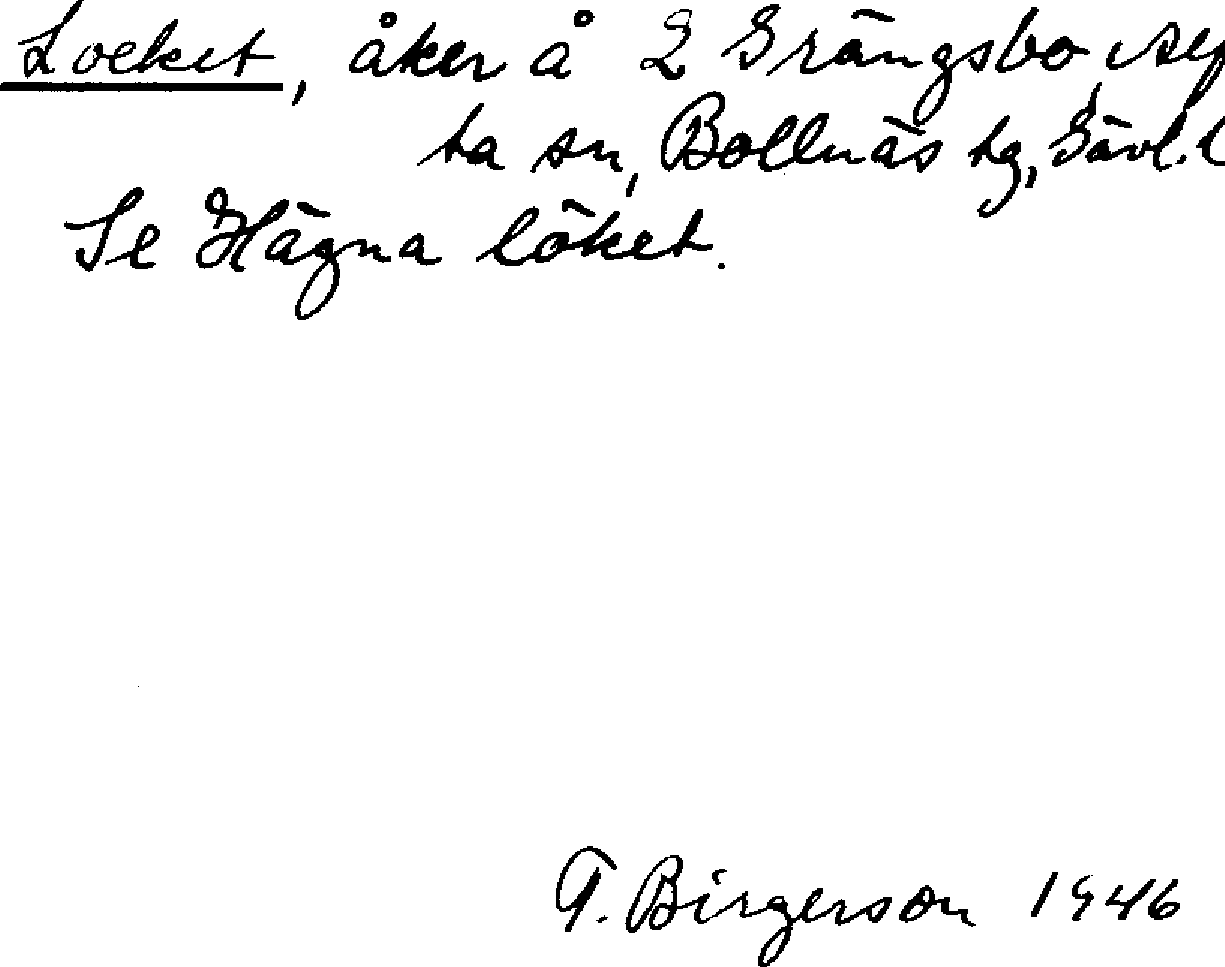 Loeket, åker å 2 Grängsbo, Alf
ta sn, Bollnäs tg, Gävl. l
Se Hägna löket.
T. Birgerson 1946